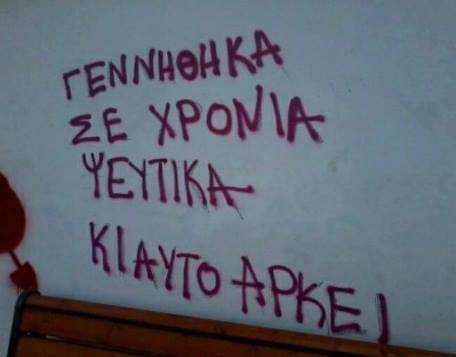 ΓΕΝΝΗΘΗΚΑ
ΣΕ ΧΡΟΝΙΑ
ΨΕΥΤΙΚΑ
ΚΙ ΑΥΤΟ ΑΡΚΕΙ